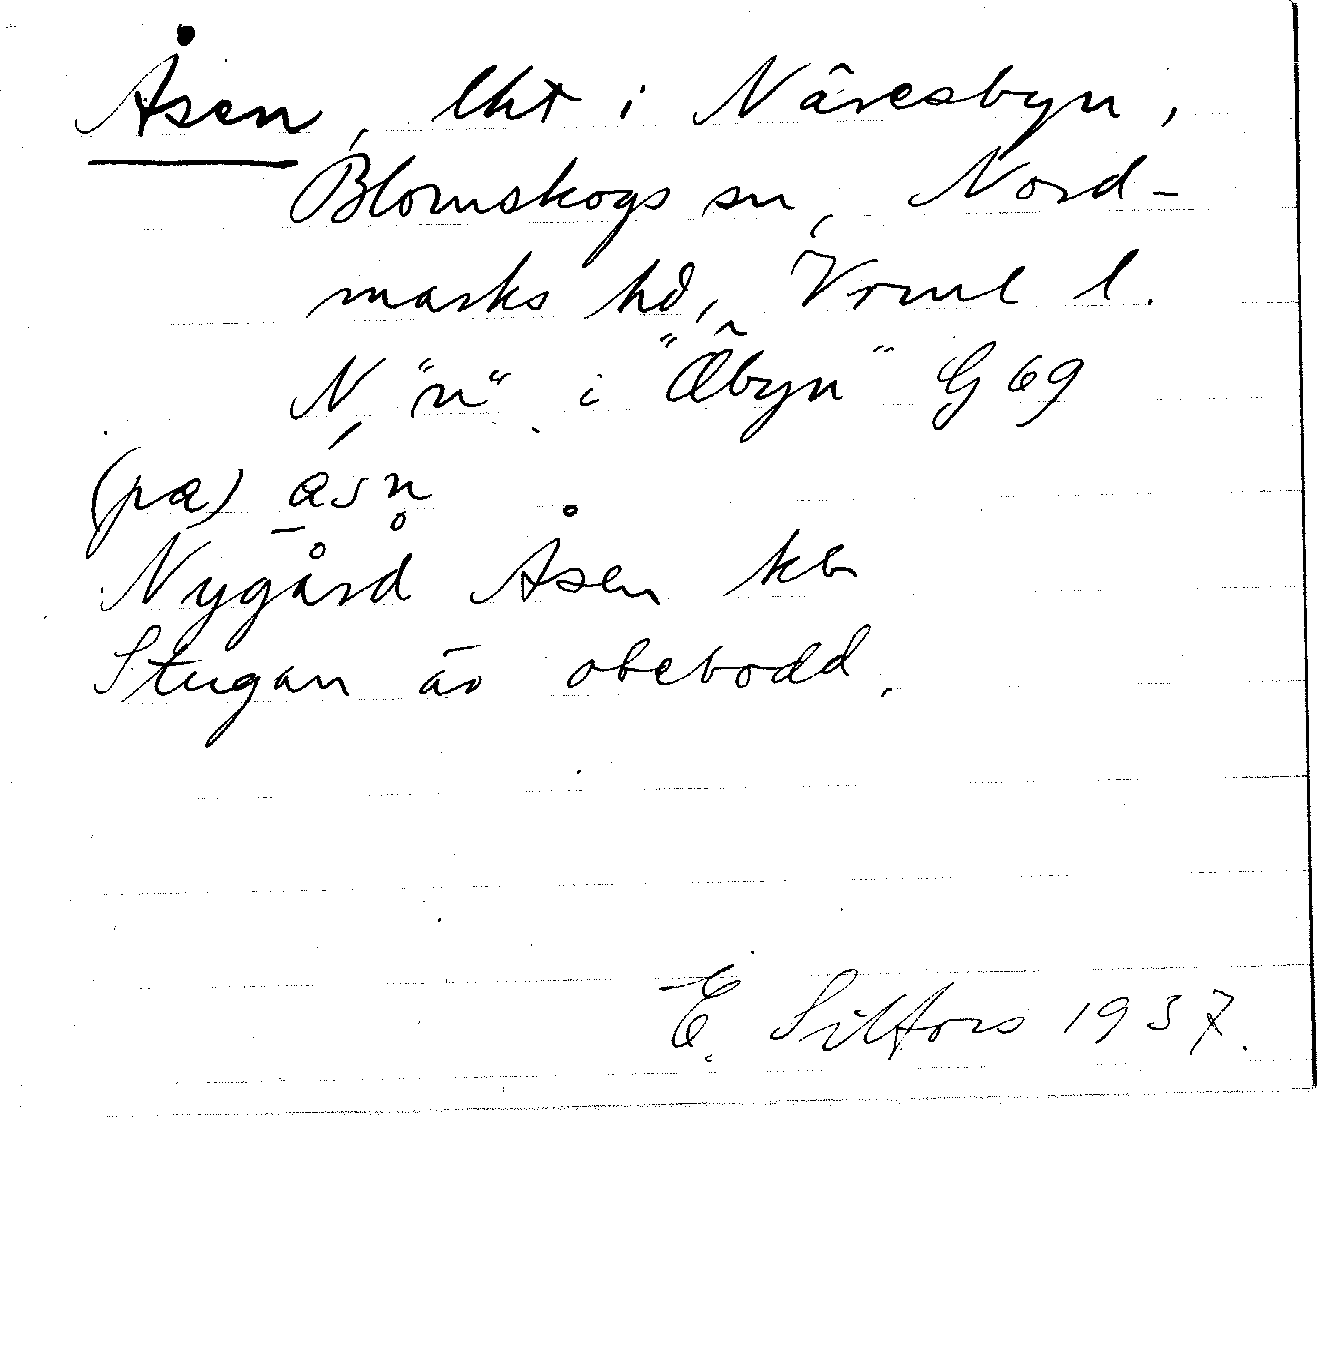 Åsen, lht i Näresbyn,
Blomskogs sn, Nord-
marks hd, Vrml l.
N "n" i "Öbyn" G 69
(pa) åsn
Nygård Åsen kbr
Stugan är obebodd.
E. Silfors 1937.